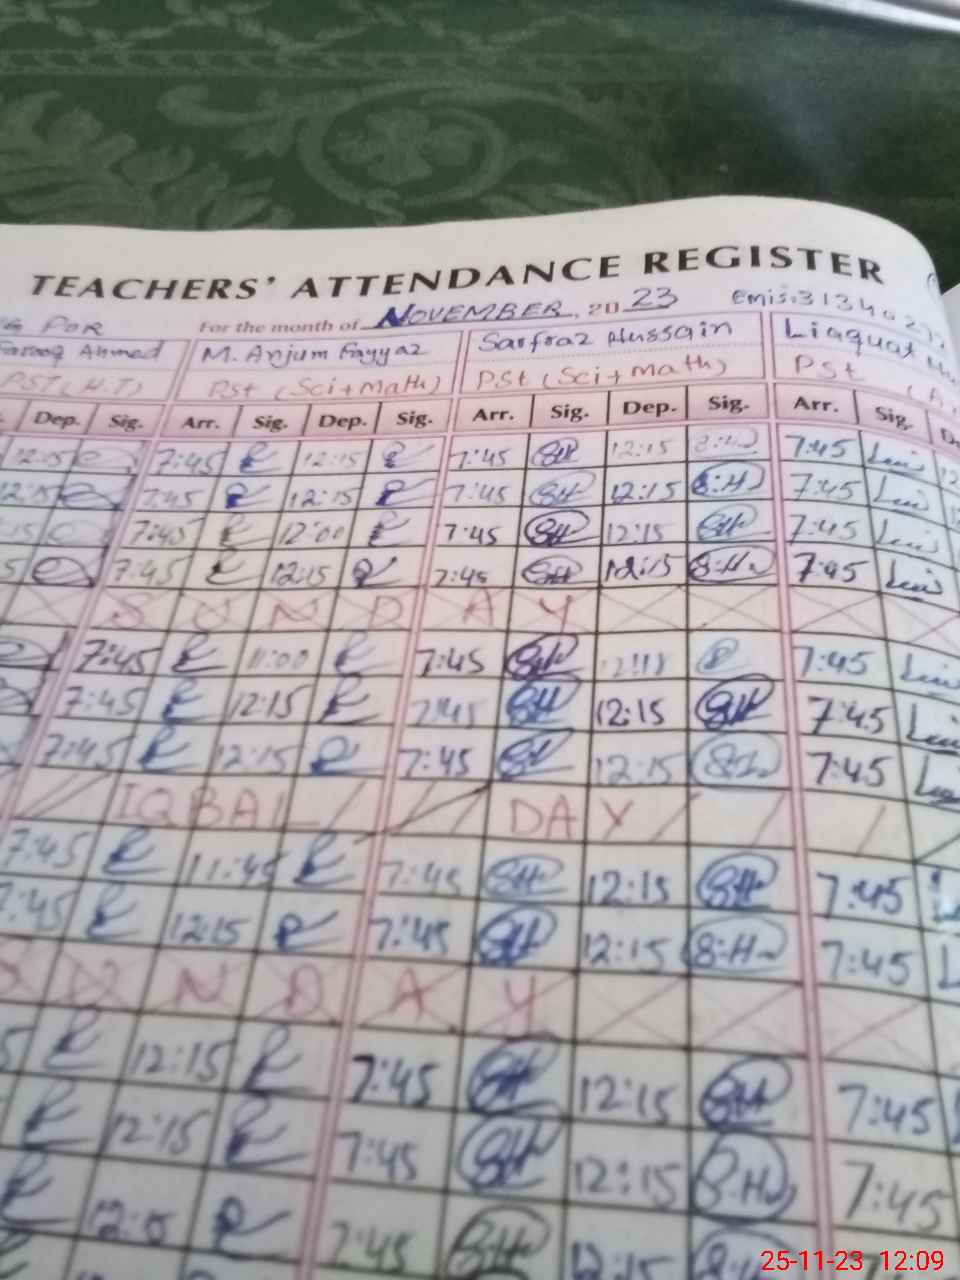 TEACHERS' ATTENDANCE REGISTER
For the month of NOVEMBER, 20 23 Emis:
Farooq Ahmed M. Anjum Fayyaz Sarfraz Hussain Liaquat
PST (H.T) Pst (Sci+Math) PSt (Sci+math) PSt
Dep. Sig. Arr. Sig. Dep. Sig. Arr. Sig. Dep. Sig. Arr. Sig.
12:15 7:45 12:15 7:45 12:15 7:45
12:15 7:45 12:15 7:45 12:15 S.H 7:45
7:45 12:00 7:45 SH 12:15 SH 7:45
7:45 12:15 7:45 SH 12:15 S.H 7:45
SUNDAY
7:45 11:00 7:45 SH 7:45
7:45 12:15 7:45 SH 12:15 SH 7:45
7:45 12:15 7:45 SH 12:15 7:45
IQBAL DAY
7:45 11:45 7:45 SH 12:15 SH 7:45
7:45 12:15 7:45 SH 12:15 S.H 7:45
SUNDAY
12:15 7:45 SH 12:15 SH 7:45
12:15 7:45 SH 12:15 S.H 7:45
12:15 7:45 S.H 12:15
25-11-23 12:09